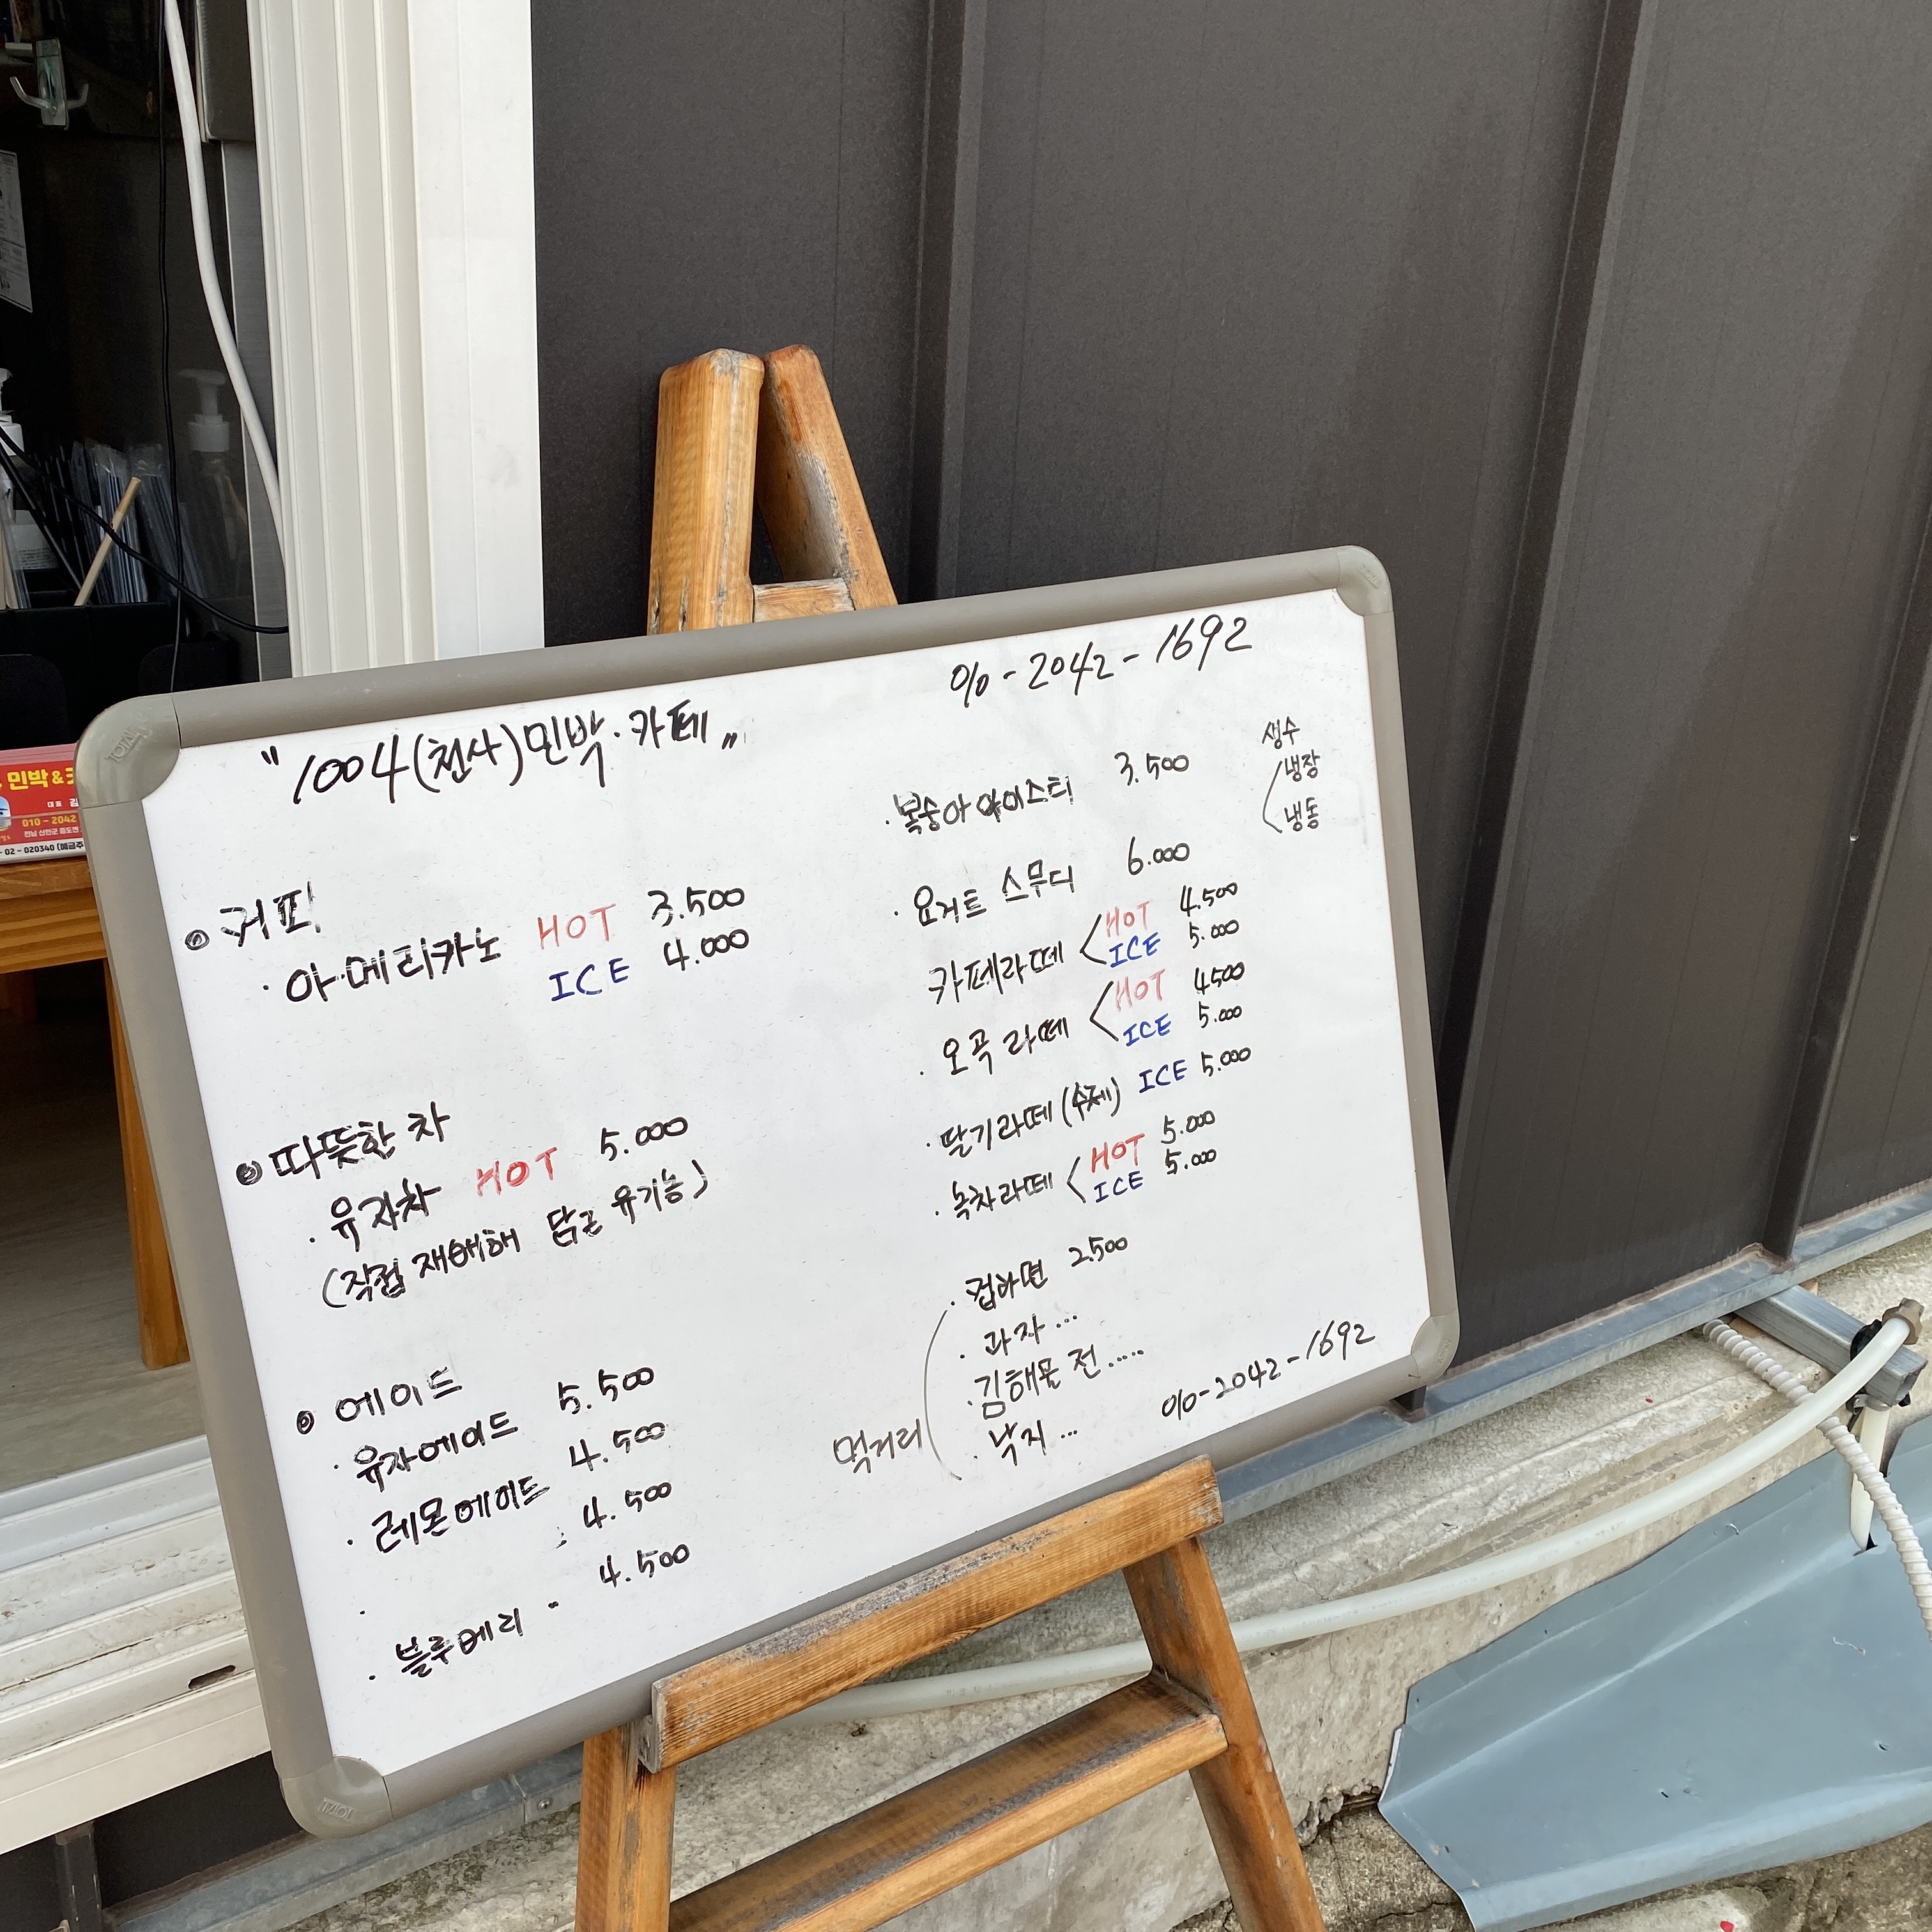 "1004(천사)민박·카페"
010-2042-1692
◎ 커피
· 아메리카노 HOT 3.500
ICE 4.000
◎ 따뜻한 차
· 유자차 HOT 5.000
(직접 재배해 담근 유기농)
◎ 에이드
· 유자에이드 5.500
· 레몬에이드 4.500
· 4.500
· 블루베리 - 4.500
· 복숭아 아이스티 3.500
생수
냉장
냉동
· 요거트 스무디 6.000
카페라떼 < HOT 4.500
ICE 5.000
· 오곡 라떼 < HOT 4500
ICE 5.000
· 딸기라떼 (수제) ICE 5.000
· 녹차라떼 < HOT 5.000
ICE 5.000
먹거리
· 컵라면 2.500
· 과자 ...
· 김해물 전 .....
· 낙지 ...
010-2042-1692
민박&
대표 김
010 - 2042
전남 신안군 증도면
- 02 - 020340 (예금주